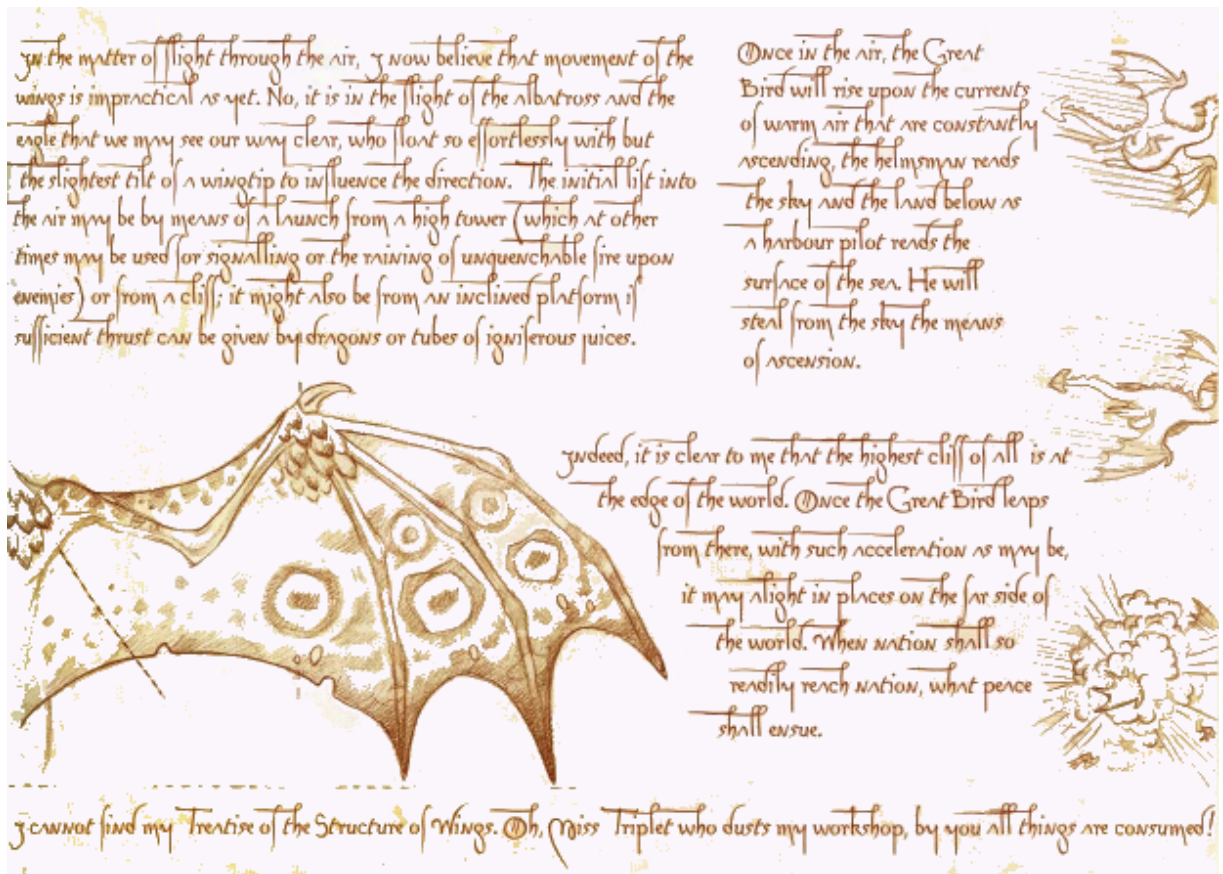 In the matter of flight through the air, I now believe that movement of the
wings is impractical as yet. No, it is in the flight of the albatross and the
eagle that we may see our way clear, who float so effortlessly with but
the slightest tilt of a wingtip to influence the direction. The initial lift into
the air may be by means of a launch from a high tower (which at other
times may be used for signalling or the raining of unquenchable fire upon
enemies) or from a cliff; it might also be from an inclined platform if
sufficient thrust can be given by dragons or tubes of igniferous juices.
Once in the air, the Great
Bird will rise upon the currents
of warm air that are constantly
ascending, the helmsman reads
the sky and the land below as
a harbour pilot reads the
surface of the sea. He will
steal from the sky the means
of ascension.
Indeed, it is clear to me that the highest cliff of all is at
the edge of the world. Once the Great Bird leaps
from there, with such acceleration as may be,
it may alight in places on the far side of
the world. When nation shall so
readily reach nation, what peace
shall ensue.
I cannot find my Treatise of the Structure of Wings. Oh, Miss Triplet who dusts my workshop, by you all things are consumed!